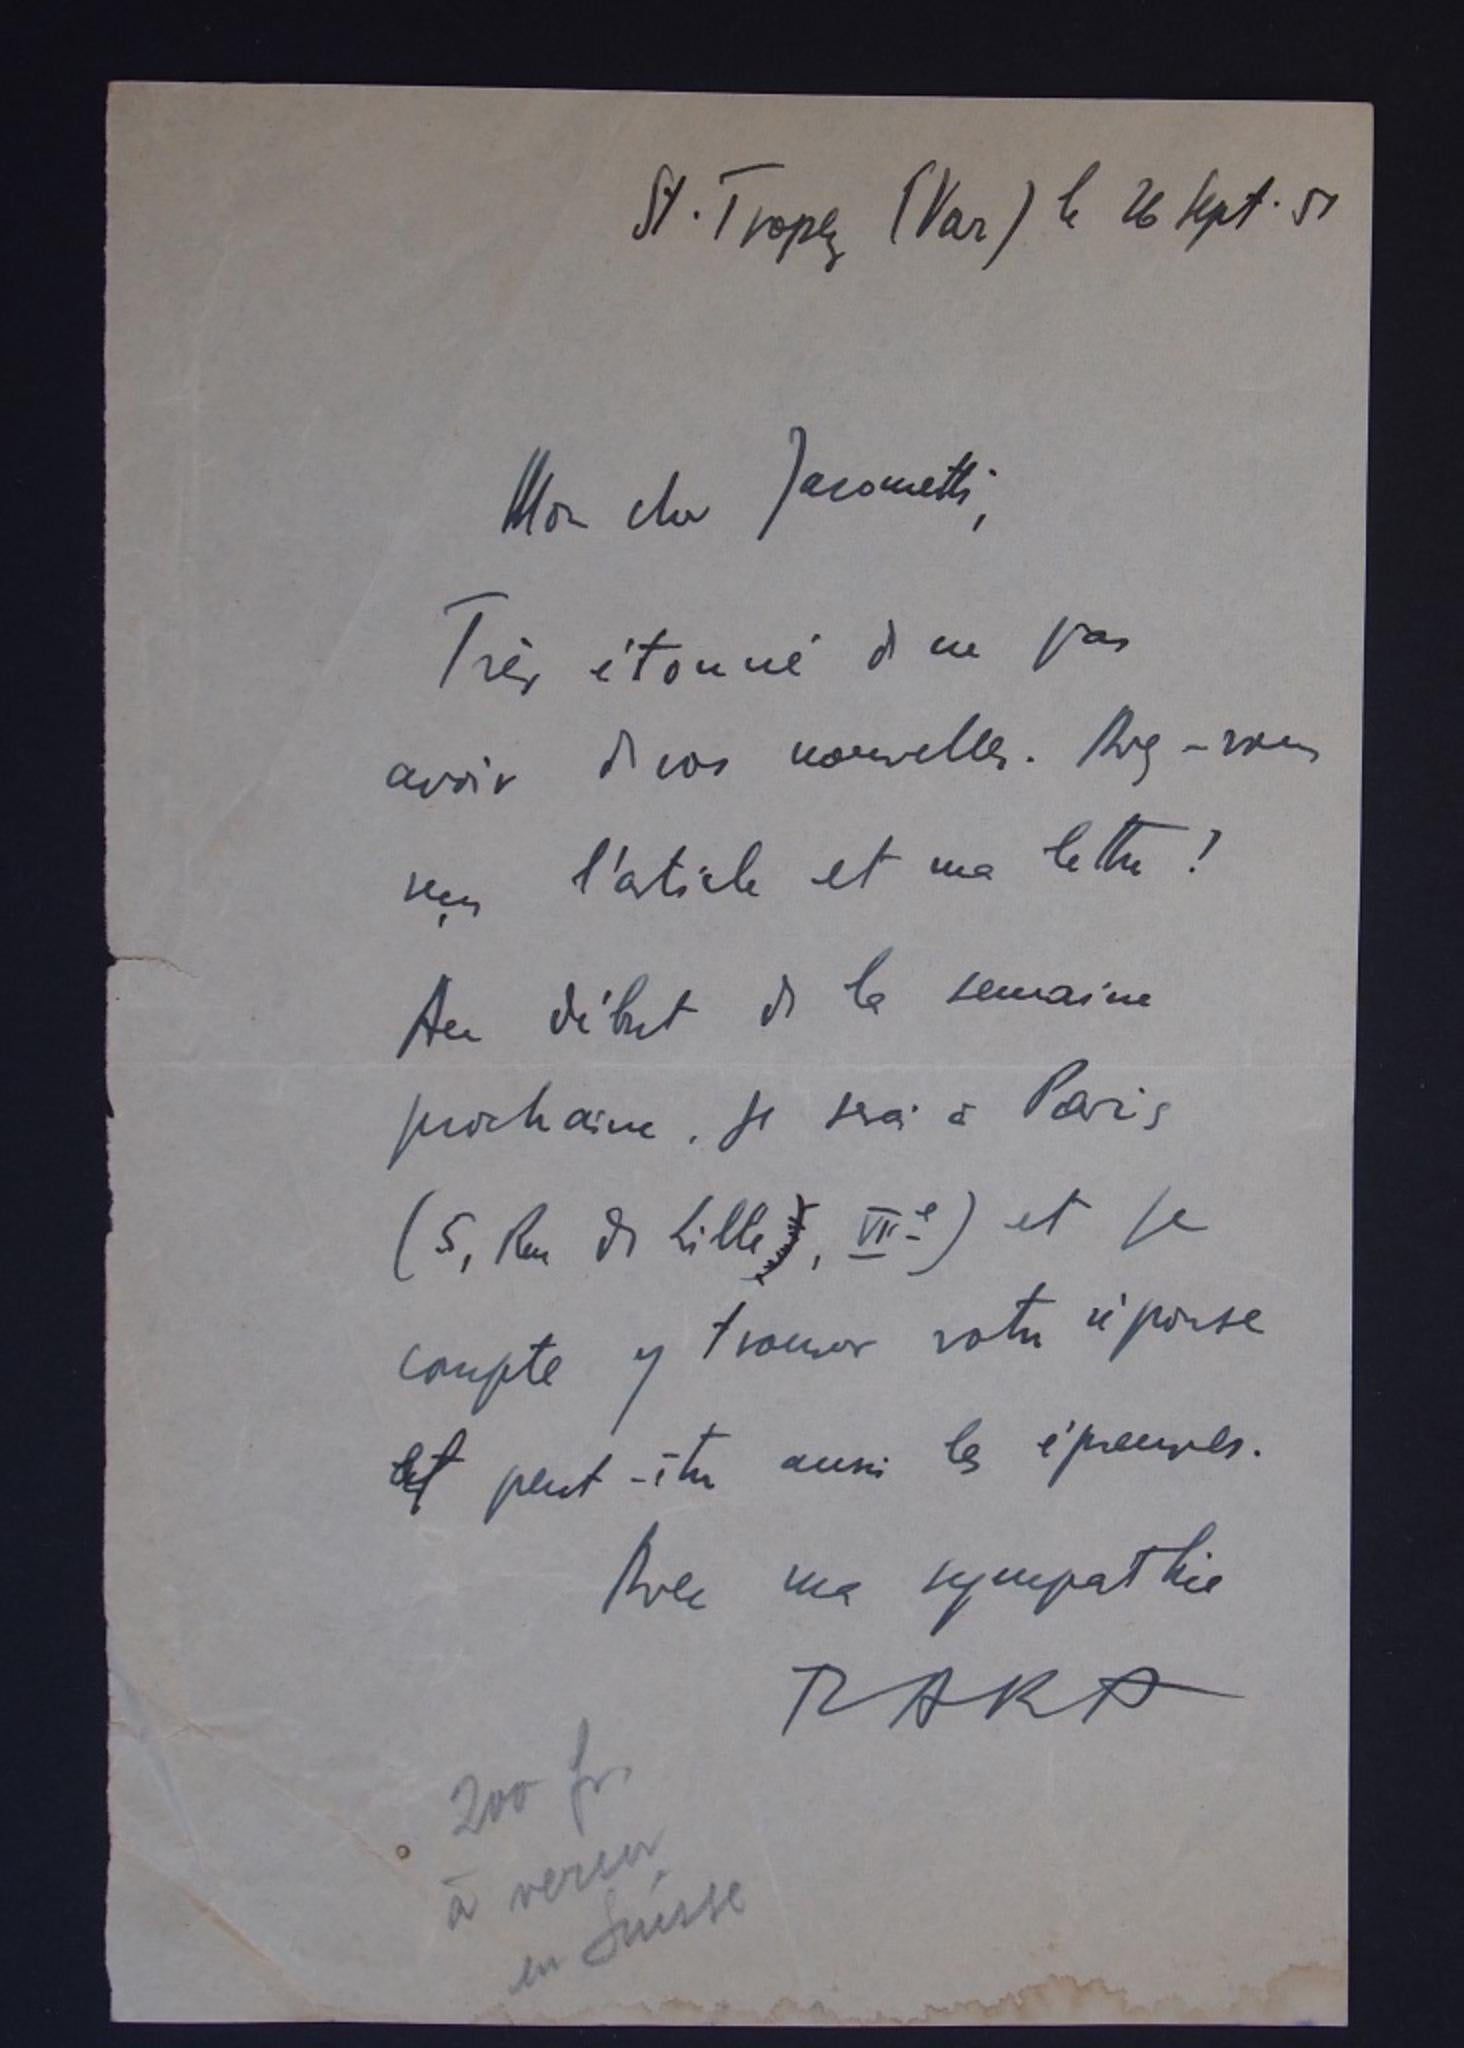 St. Tropez (Var) le 26 Sept. 51
Mon cher Jacometti,
Très étonné de ne pas
avoir de vos nouvelles. Avez-vous
reçu l'article et ma lettre ?
Au début de la semaine
prochaine, je serai à Paris
(5, Rue de Lille, VIIe) et je
compte y trouver votre réponse
et peut-être aussi les épreuves.
Avec ma sympathie
200 fr.
à verser
en Suisse